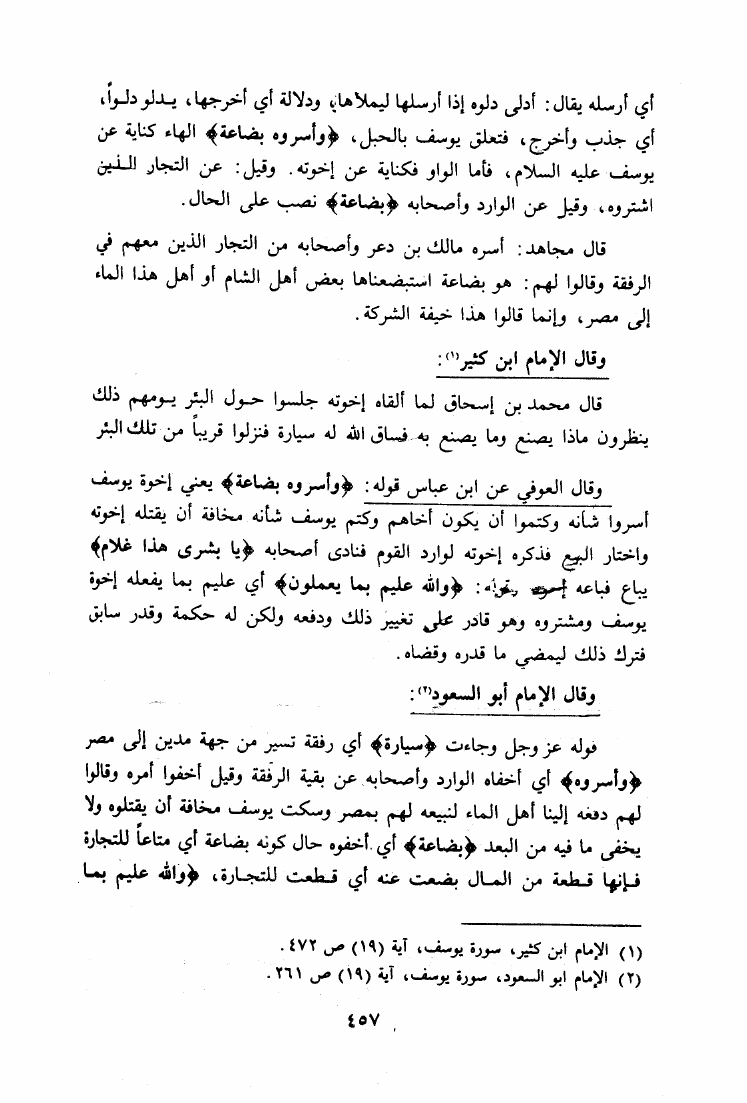 أي أرسله يقال: أدلى دلوه إذا أرسلها ليملأها، ودلالة أي أخرجها، يـدلو دلـواً،
أي جذب وأخرج، فتعلق يوسف بالحبل، ﴿وأسروه بضاعة﴾ الهاء كناية عن
يوسف عليه السلام، فأما الواو فكناية عن إخوته. وقيل: عن التجار الـذين
اشتروه، وقيل عن الوارد وأصحابه ﴿بضاعة﴾ نصب على الحال.
قال مجاهد: أسره مالك بن دعر وأصحابه من التجار الذين معهم في
الرفقة وقالوا لهم: هو بضاعة استبضعناها بعض أهل الشام أو أهل هذا الماء
إلى مصر، وإنما قالوا هذا خيفة الشركة.
وقال الإمام ابن كثير(١):
قال محمد بن إسحاق لما ألقاه إخوته جلسوا حـول البئر يـومهم ذلك
ينظرون ماذا يصنع وما يصنع به فساق الله له سيارة فنزلوا قريباً من تلك البئر
وقال العوفي عن ابن عباس قوله: ﴿وأسروه بضاعة﴾ يعني إخوة يوسف
أسروا شأنه وكتموا أن يكون أخاهم وكتم يوسف شأنه مخافة أن يقتله إخوته
واختار البيع فذكره إخوته لوارد القوم فنادى أصحابه ﴿يا بشرى هذا غلام﴾
يباع فباعه بقوله: ﴿والله عليم بما يعملون﴾ أي عليم بما يفعله إخوة
يوسف ومشتروه وهو قادر على تغيير ذلك ودفعه ولكن له حكمة وقدر سابق
فترك ذلك ليمضي ما قدره وقضاه.
وقال الإمام أبو السعود(٢):
قوله عز وجل وجاءت ﴿سيارة﴾ أي رفقة تسير من جهة مدين إلى مصر
﴿وأسروه﴾ أي أخفاه الوارد وأصحابه عن بقية الرفقة وقيل أخفوا أمره وقالوا
لهم دفعه إلينا أهل الماء لنبيعه لهم بمصر وسكت يوسف مخافة أن يقتلوه ولا
يخفى ما فيه من البعد ﴿بضاعة﴾ أي أخفوه حال كونه بضاعة أي متاعاً للتجارة
فـإنها قـطعة من المـال بضعت عنه أي قـطعت للتجـارة، ﴿والله عليم بمـا
(١) الإمام ابن كثير، سورة يوسف، آية (١٩) ص ٤٧٢.
(٢) الإمام ابو السعود، سورة يوسف، آية (١٩) ص ٢٦١.
٤٥٧